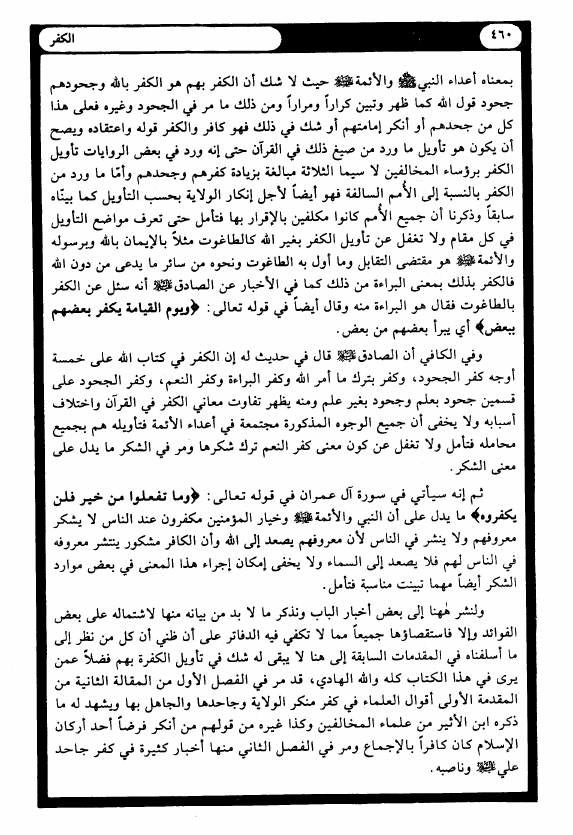 ٤٦٠
الكفر
بمعناه أعداء النبي ﷺ والأئمة ﷺ حيث لا شك أن الكفر بهم هو الكفر بالله وجحودهم
جحود قول الله كما ظهر وتبين كراراً ومراراً ومن ذلك ما مر في الجحود وغيره فعلى هذا
كل من جحدهم أو أنكر إمامتهم أو شك في ذلك فهو كافر والكفر قوله واعتقاده ويصح
أن يكون هو تأويل ما ورد من صيغ ذلك في القرآن حتى إنه ورد في بعض الروايات تأويل
الكفر برؤساء المخالفين لا سيما الثلاثة مبالغة بزيادة كفرهم وجحدهم وأمّا ما ورد من
الكفر بالنسبة إلى الأُمم السالفة فهو أيضاً لأجل إنكار الولاية بحسب التأويل كما بينّاه
سابقاً وذكرنا أن جميع الأُمم كانوا مكلفين بالإقرار بها فتأمل حتى تعرف مواضع التأويل
في كل مقام ولا تغفل عن تأويل الكفر بغير الله كالطاغوت مثلاً بالإيمان بالله وبرسوله
والأئمة ﷺ هو مقتضى التقابل وما أول به الطاغوت ونحوه من سائر ما يدعى من دون الله
فالكفر بذلك بمعنى البراءة من ذلك كما في الأخبار عن الصادق ﷺ أنه سئل عن الكفر
بالطاغوت فقال هو البراءة منه وقال أيضاً في قوله تعالى: ﴿ويوم القيامة يكفر بعضهم
ببعض﴾ أي يبرأ بعضهم من بعض.
وفي الكافي أن الصادق ﷺ قال في حديث له إن الكفر في كتاب الله على خمسة
أوجه كفر الجحود، وكفر بترك ما أمر الله وكفر البراءة وكفر النعم، وكفر الجحود على
قسمين جحود بعلم وجحود بغير علم ومنه يظهر تفاوت معاني الكفر في القرآن واختلاف
أسبابه ولا يخفى أن جميع الوجوه المذكورة مجتمعة في أعداء الأئمة فتأويله هم بجميع
محامله فتأمل ولا تغفل عن كون معنى كفر النعم ترك شكرها ومر في الشكر ما يدل على
معنى الشكر.
ثم إنه سيأتي في سورة آل عمران في قوله تعالى: ﴿وما تفعلوا من خير فلن
يكفروه﴾ ما يدل على أن النبي والأئمة ﷺ وخيار المؤمنين مكفرون عند الناس لا يشكر
معروفهم ولا ينشر في الناس لأن معروفهم يصعد إلى الله وأن الكافر مشكور ينتشر معروفه
في الناس لهم فلا يصعد إلى السماء ولا يخفى إمكان إجراء هذا المعنى في بعض موارد
الشكر أيضاً مهما تبينت مناسبة فتأمل.
ولنشر هٰهنا إلى بعض أخبار الباب ونذكر ما لا بد من بيانه منها لاشتماله على بعض
الفوائد وإلا فاستقصاؤها جميعاً مما لا تكفي فيه الدفاتر على أن ظني أن كل من نظر إلى
ما أسلفناه في المقدمات السابقة إلى هنا لا يبقى له شك في تأويل الكفرة بهم فضلاً عمن
يرى في هذا الكتاب كله والله الهادي، قد مر في الفصل الأول من المقالة الثانية من
المقدمة الأولى أقوال العلماء في كفر منكر الولاية وجاحدها والجاهل بها ويشهد له ما
ذكره ابن الأثير من علماء المخالفين وكذا غيره من قولهم من أنكر فرضاً أحد أركان
الإسلام كان كافراً بالإجماع ومر في الفصل الثاني منها أخبار كثيرة في كفر جاحد
علي ﷺ وناصبه.